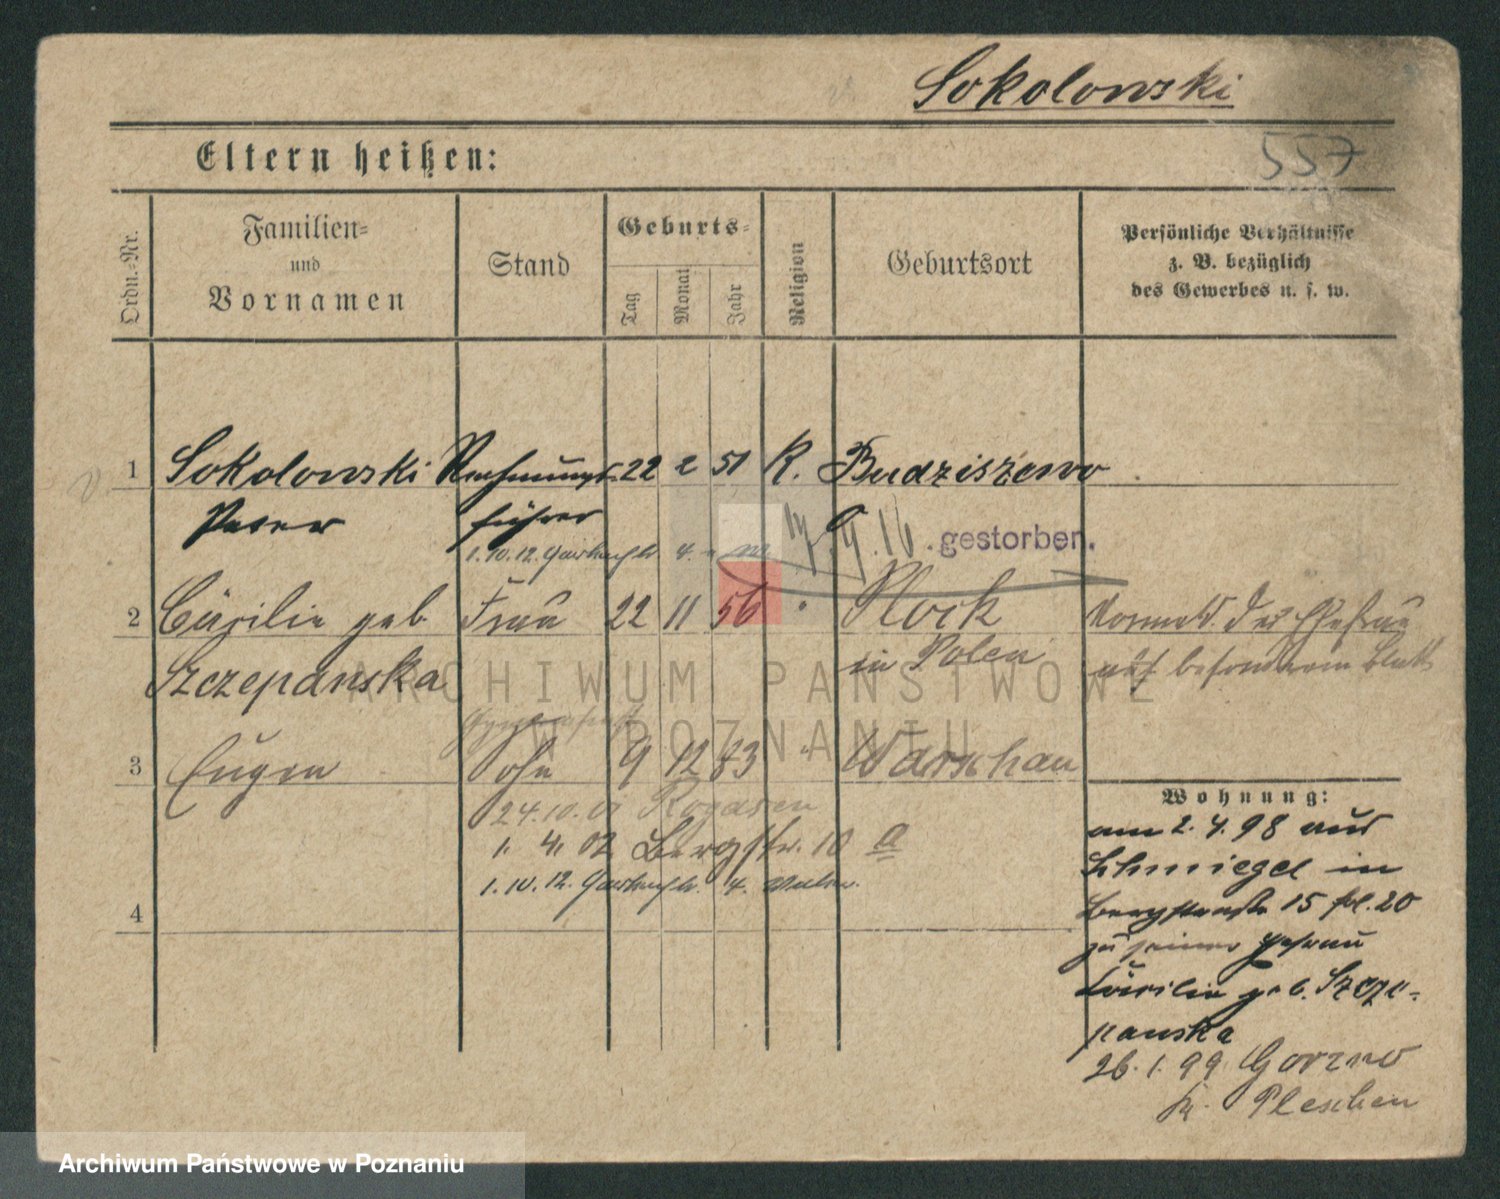 Sokolowski
Eltern heißen:
557
Ordn.-Nr.
Familien-
und
Vornamen
Stand
Geburts-
Tag
Monat
Jahr
Religion
Geburtsort
Persönliche Verhältnisse
z. B. bezüglich
des Gewerbes u. s. w.
1 Sokolowski Rechnungs- 22 2 51 K. Budziszewo
Peter führer
1.10.12. 4. 9.16. gestorben.
2 Cäcilie geb. Frau 22 11 56 " Plock
Szczepanska in Polen
der Ehefrau
auf besonderem Blatt
3 Eugen Sohn 9 12 83 " Warschau
24.10.01 Rogasen
1. 4. 02 Bergstr. 10 a
1.10.12. 4.
4
Wohnung:
am 2.4.98 aus
Schmiegel in
Bergstraße 15 20
zu seiner Ehefrau
Cäcilie geb. Szcze-
panska
26.1.99 Gorzno
Kr. Pleschen
ARCHIWUM PAŃSTWOWE
W POZNANIU
Archiwum Państwowe w Poznaniu